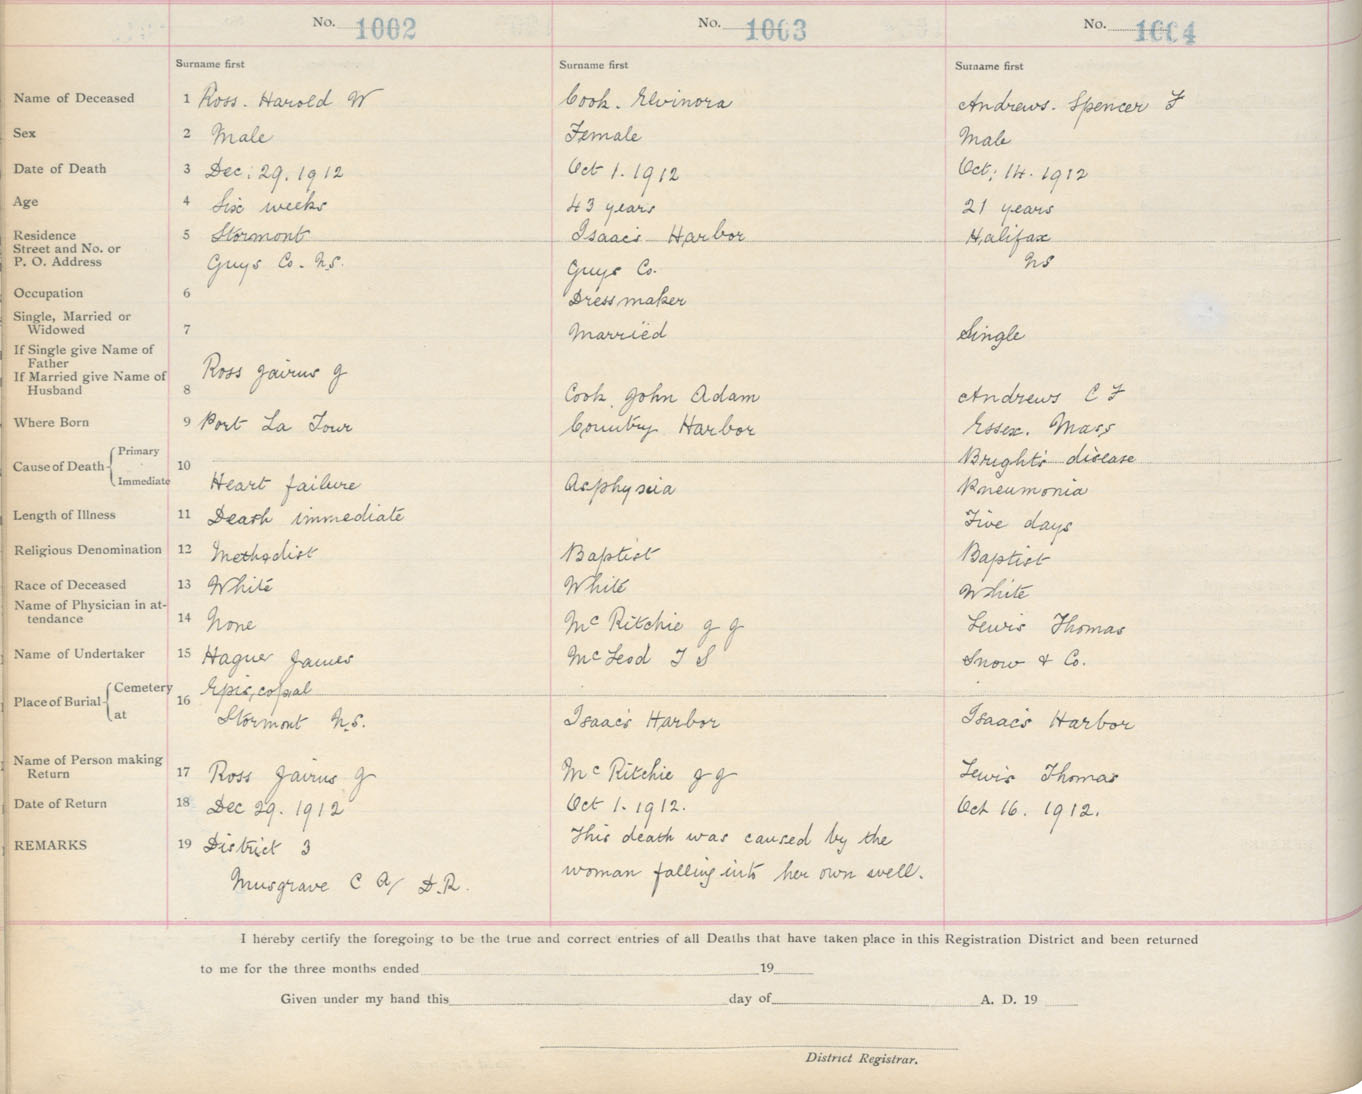 No. 1002 No. 1003 No. 1004
Surname first Surname first Surname first
Name of Deceased 1 Ross. Harold W Cook. Elvinora Andrews. Spencer F
Sex 2 Male Female Male
Date of Death 3 Dec. 29. 1912 Oct 1. 1912 Oct. 14. 1912
Age 4 Six weeks 43 years 21 years
Residence 5 Stormont Isaac's Harbor Halifax
Street and No. or
P. O. Address Guys Co. N.S. Guys Co. NS
Occupation 6 Dressmaker
Single, Married or
Widowed 7 Married Single
If Single give Name of
Father Ross Jairus G
If Married give Name of
Husband 8 Cook John Adam Andrews C F
Where Born 9 Port La Tour Country Harbor Essex. Mass
Cause of Death Primary 10 Bright's disease
Immediate Heart failure Asphyxia Pneumonia
Length of Illness 11 Death immediate Five days
Religious Denomination 12 Methodist Baptist Baptist
Race of Deceased 13 White White White
Name of Physician in at-
tendance 14 None McRitchie J J Lewis Thomas
Name of Undertaker 15 James McLeod T S Snow & Co.
Place of Burial Cemetery 16 Episcopal
at Stormont N.S. Isaac's Harbor Isaac's Harbor
Name of Person making
Return 17 Ross Jairus G McRitchie J J Lewis Thomas
Date of Return 18 Dec 29. 1912 Oct 1. 1912. Oct 16. 1912.
REMARKS 19 District 3 This death was caused by the
Musgrave C A D.R. woman falling into her own well.
I hereby certify the foregoing to be the true and correct entries of all Deaths that have taken place in this Registration District and been returned
to me for the three months ended 19
Given under my hand this day of A. D. 19
District Registrar.